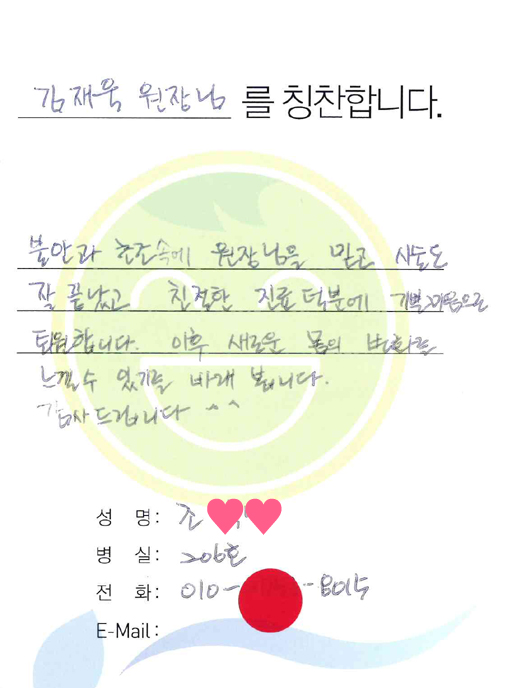 김재욱 원장님 를 칭찬합니다.
불안과 초조속에 원장님을 믿고 시술도
잘 끝났고 친절한 진료 덕분에 기쁜마음으로
퇴원합니다. 이후 새로운 몸의 변화를
느낄수 있기를 바래 봅니다.
감사드립니다 ^^
성 명: 조
병 실: 206호
전 화: 010- -8015
E-Mail: